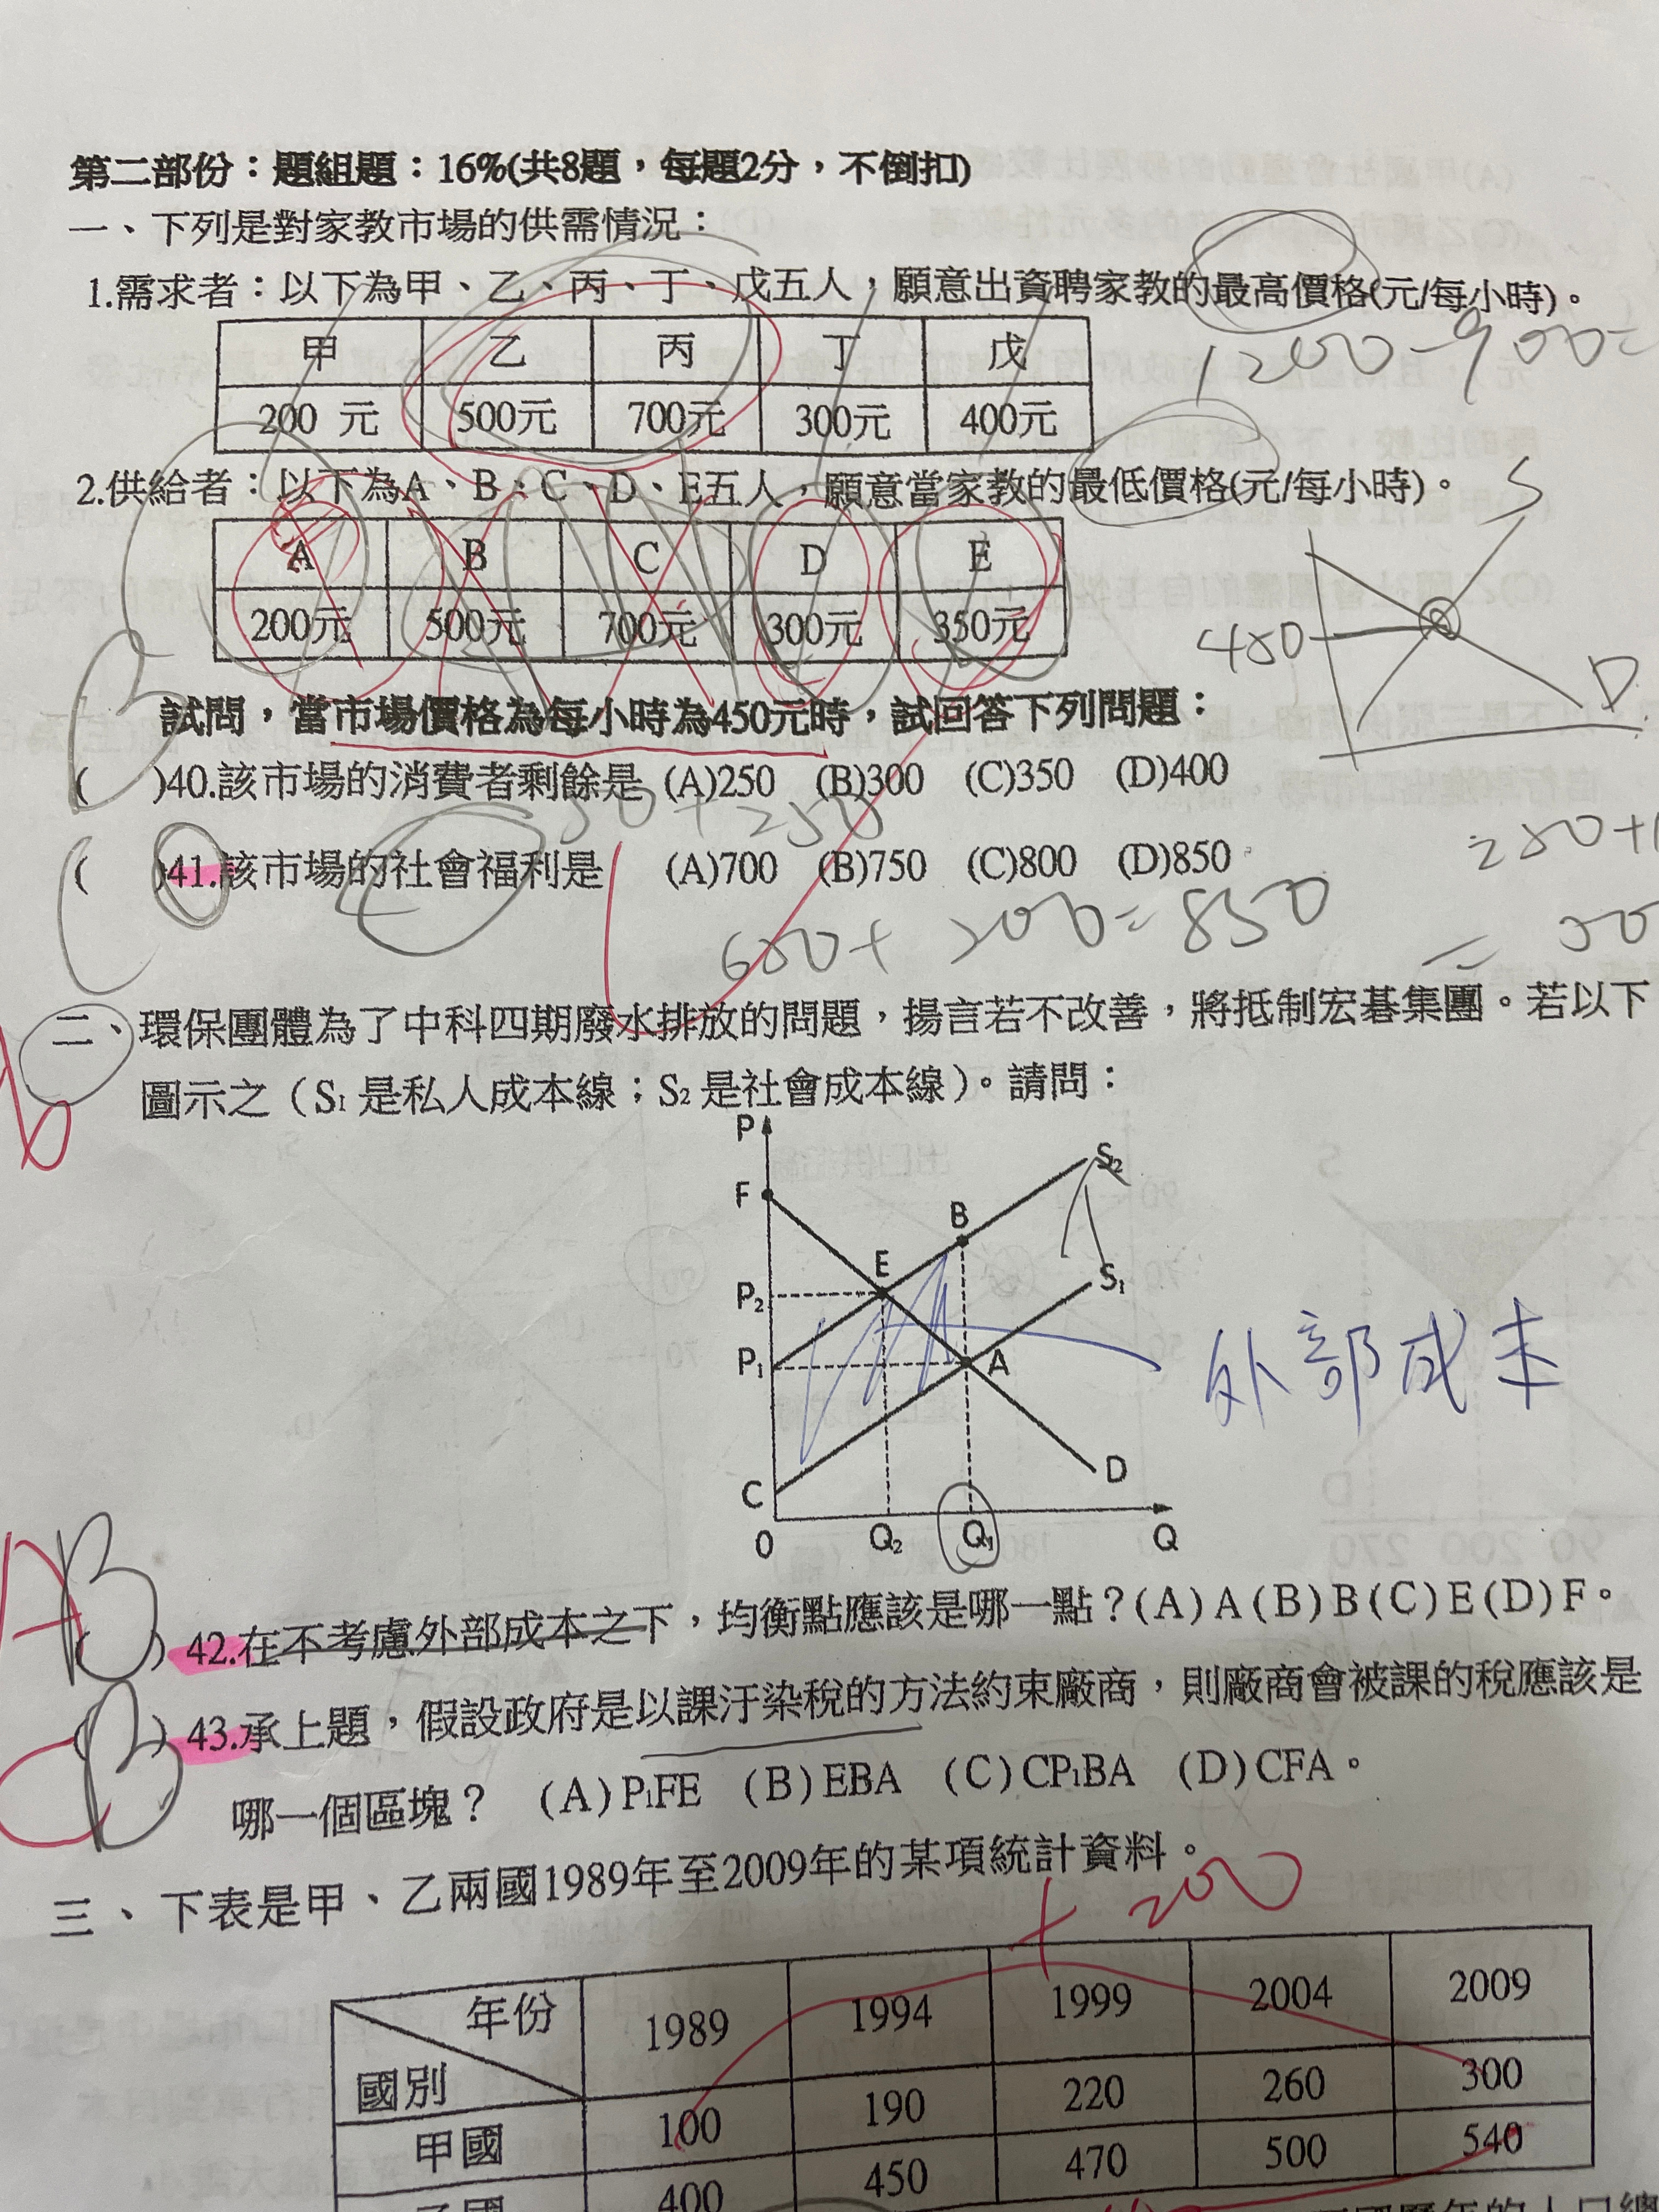 第二部份：題組題：16%(共8題，每題2分，不倒扣)
一、下列是對家教市場的供需情況：
1.需求者：以下為甲、乙、丙、丁、戊五人，願意出資聘家教的最高價格(元/每小時)。
1200-900=
甲 乙 丙 丁 戊
200 元 500元 700元 300元 400元
2.供給者：以下為A、B、C、D、E五人，願意當家教的最低價格(元/每小時)。
A B C D E
200元 500元 700元 300元 350元
S
450
D
試問，當市場價格為每小時為450元時，試回答下列問題：
B
( )40.該市場的消費者剩餘是 (A)250 (B)300 (C)350 (D)400
50+250
( )41.該市場的社會福利是 (A)700 (B)750 (C)800 (D)850
600+200=850
二、環保團體為了中科四期廢水排放的問題，揚言若不改善，將抵制宏碁集團。若以下
圖示之（S₁是私人成本線；S₂是社會成本線）。請問：
P
S₂
F
B
E
S₁
P₂
P₁
A
外部成本
D
C
0 Q₂ Q₁ Q
A B
( ) 42.在不考慮外部成本之下，均衡點應該是哪一點？(A)A(B)B(C)E(D)F。
C B
( ) 43.承上題，假設政府是以課汙染稅的方法約束廠商，則廠商會被課的稅應該是
哪一個區塊？ (A)P₁FE (B)EBA (C)CP₁BA (D)CFA。
三、下表是甲、乙兩國1989年至2009年的某項統計資料。
+200
年份 1989 1994 1999 2004 2009
國別
甲國 100 190 220 260 300
乙國 400 450 470 500 540